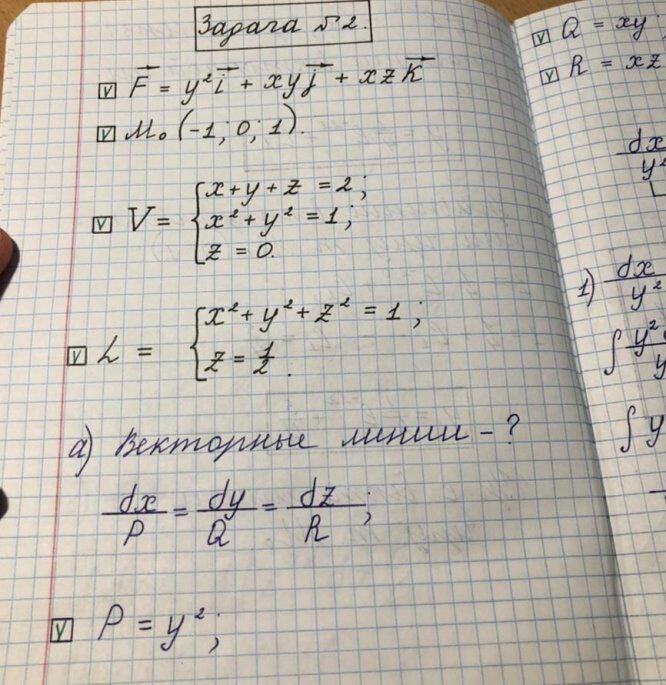 Задача №2.
F = y²i + xyj + xzk
M₀ (-1; 0; 1).
V = { x+y+z = 2;
x²+y² = 1;
z = 0.
L = { x²+y²+z² = 1;
z = 1/2.
а) Векторные линии - ?
dx/P = dy/Q = dz/R;
P = y²;
Q = xy
R = xz
dx/y²
1) dx/y²
∫ y²
∫ y